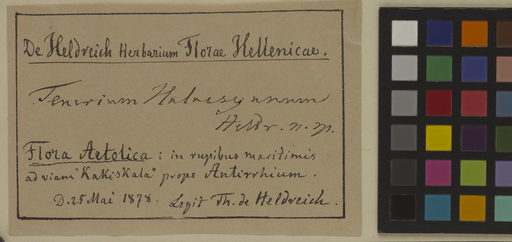 De Heldreich Herbarium Florae Hellenicae.
Teucrium Halacsyanum
Heldr. n. sp.
Flora Aetolica : in rupibus maritimis
ad viam "Kakiskala" prope Antirrhium.
D. 25 Mai 1878. Legit Th. de Heldreich.